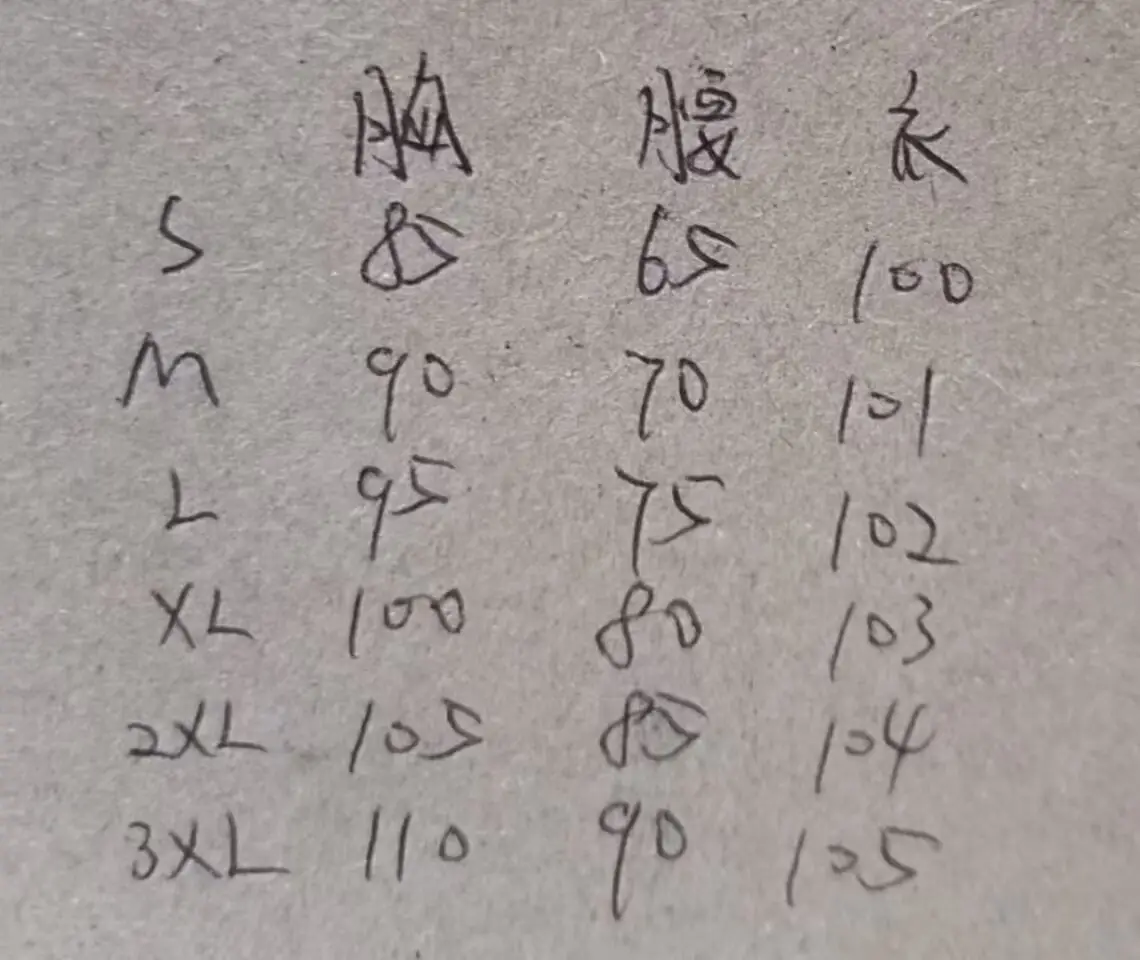 胸 腹 衣
S 85 65 100
M 90 70 101
L 95 75 102
XL 100 80 103
2XL 105 85 104
3XL 110 90 105